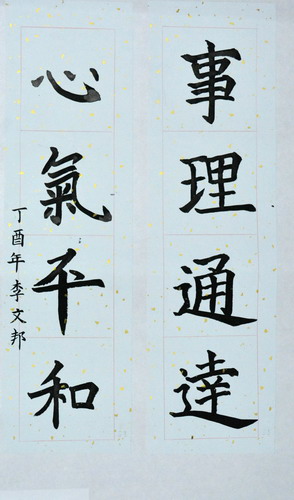 事理通達
心氣平和
丁酉年李文邦